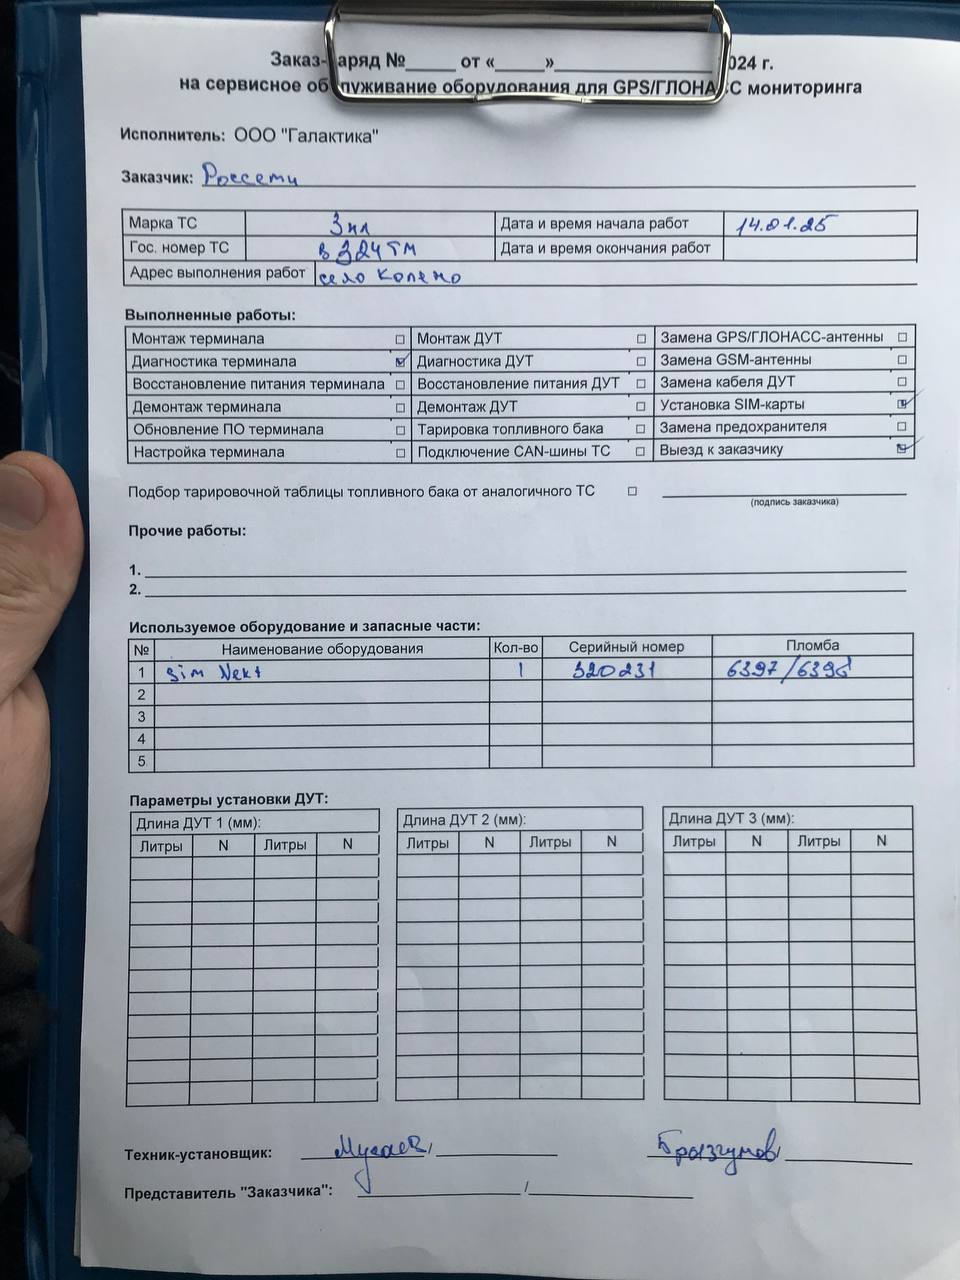 Заказ-наряд №_____ от «_____»________________ 2024 г.
на сервисное обслуживание оборудования для GPS/ГЛОНАСС мониторинга
Исполнитель: ООО "Галактика"
Заказчик: Россети
Марка ТС Зил Дата и время начала работ 14.01.25
Гос. номер ТС в 324 тм Дата и время окончания работ
Адрес выполнения работ село Колено
Выполненные работы:
Монтаж терминала ☐ Монтаж ДУТ ☐ Замена GPS/ГЛОНАСС-антенны ☐
Диагностика терминала ☑ Диагностика ДУТ ☐ Замена GSM-антенны ☐
Восстановление питания терминала ☐ Восстановление питания ДУТ ☐ Замена кабеля ДУТ ☐
Демонтаж терминала ☐ Демонтаж ДУТ ☐ Установка SIM-карты ☑
Обновление ПО терминала ☐ Тарировка топливного бака ☐ Замена предохранителя ☐
Настройка терминала ☐ Подключение CAN-шины ТС ☐ Выезд к заказчику ☑
Подбор тарировочной таблицы топливного бака от аналогичного ТС ☐
(подпись заказчика)
Прочие работы:
1.
2.
Используемое оборудование и запасные части:
№ Наименование оборудования Кол-во Серийный номер Пломба
1 sim Nekt 1 320231 6397/6398
2
3
4
5
Параметры установки ДУТ:
Длина ДУТ 1 (мм): Длина ДУТ 2 (мм): Длина ДУТ 3 (мм):
Литры N Литры N Литры N Литры N Литры N Литры N
Техник-установщик: Мусаев / Брызгунов /
Представитель "Заказчика": /